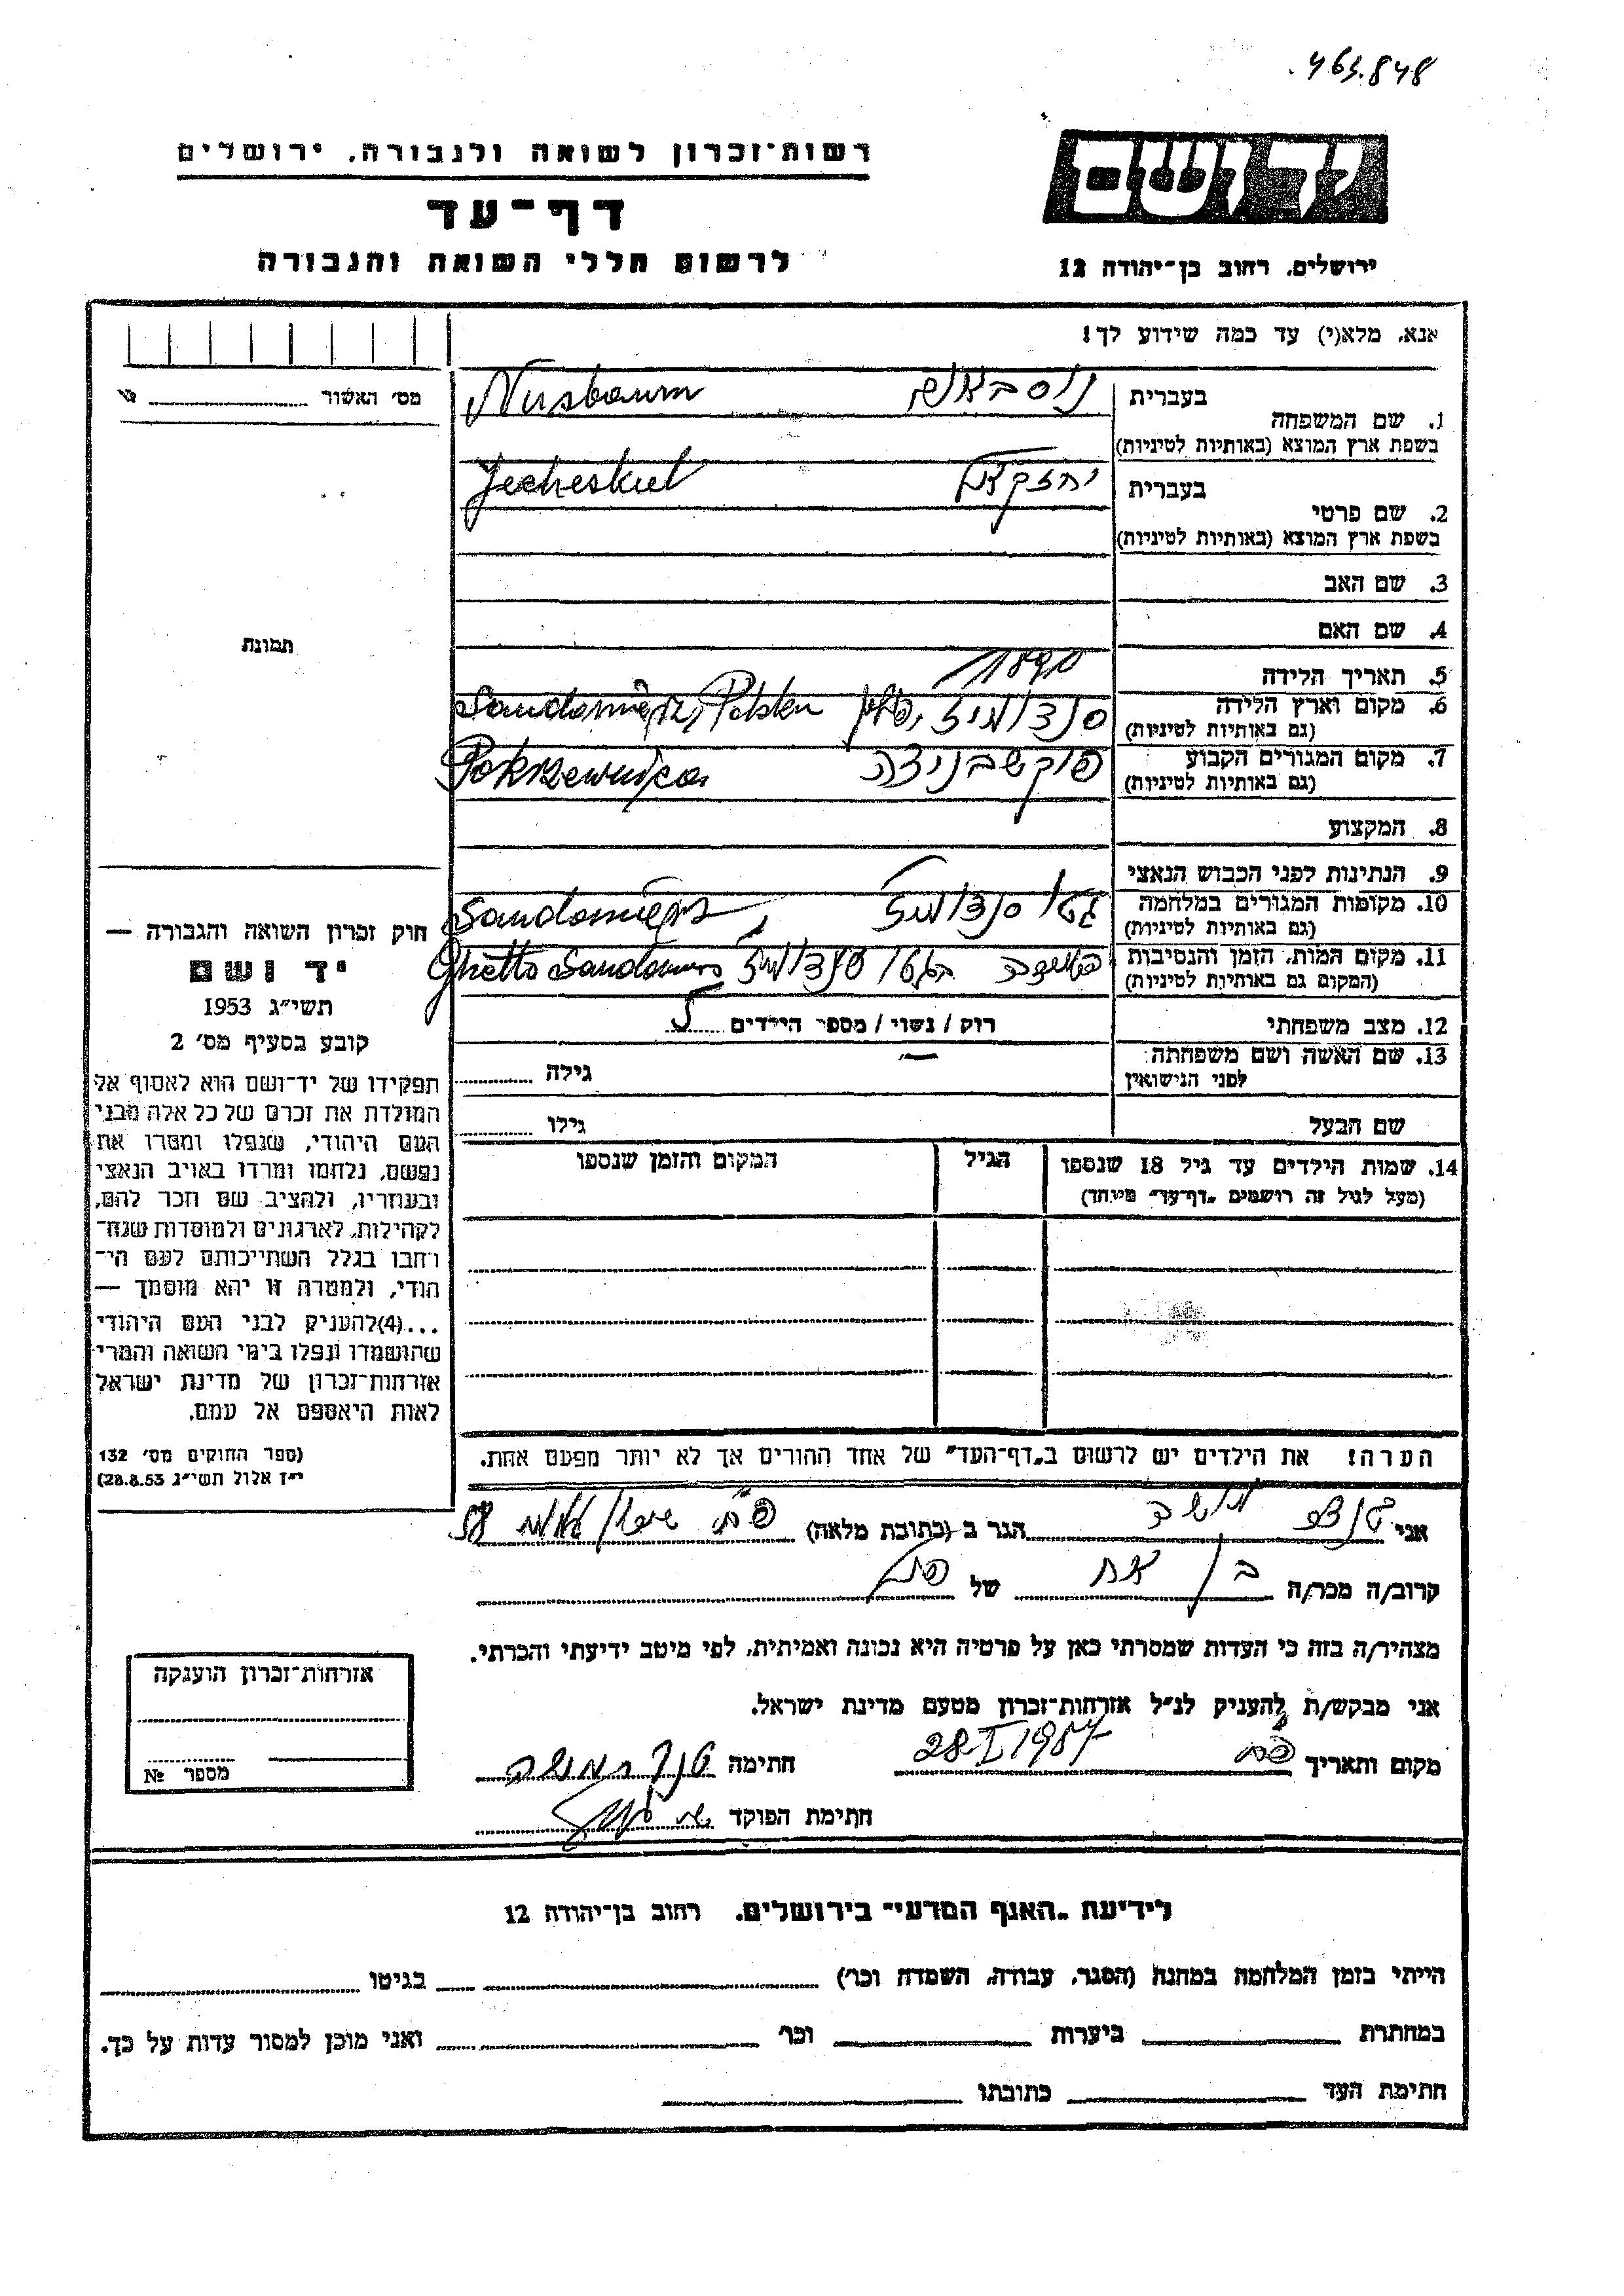 463.848
יד ושם
ירושלים, רחוב בן־יהודה 12
רשות־זכרון לשואה ולגבורה, ירושלים
דף־עד
לרשום חללי השואה והגבורה
אנא, מלא(י) עד כמה שידוע לך!
בעברית נוסבאום Nusbaum
1. שם המשפחה
בשפת ארץ המוצא (באותיות לטיניות)
בעברית יחזקאל Jecheskiel
2. שם פרטי
בשפת ארץ המוצא (באותיות לטיניות)
3. שם האב
4. שם האם
5. תאריך הלידה 1890
6. מקום וארץ הלידה
(גם באותיות לטיניות)
7. מקום המגורים הקבוע
(גם באותיות לטיניות) Pokrzewnica
8. המקצוע
9. הנתינות לפני הכבוש הנאצי
10. מקומות המגורים במלחמה
(גם באותיות לטיניות)
11. מקום המות, הזמן והנסיבות Ghetto
(המקום גם באותיות לטיניות)
12. מצב משפחתי רוק / נשוי / מספר הילדים 5
13. שם האשה ושם משפחתה
לפני הנישואין גילה
שם הבעל גילו
14. שמות הילדים עד גיל 18 שנספו הגיל המקום והזמן שנספו
(מעל לגיל זה רושמים „דף־עד״ מיוחד)
הערה! את הילדים יש לרשום ב„דף־העד״ של אחד ההורים אך לא יותר מפעם אחת.
מס׳ האשור
תמונת
חוק זכרון השואה והגבורה —
יד ושם
תשי״ג 1953
קובע בסעיף מס׳ 2
תפקידו של יד־ושם הוא לאסוף אל
המולדת את זכרם של כל אלה מבני
העם היהודי, שנפלו ומסרו את
נפשם, נלחמו ומרדו באויב הנאצי
ובעוזריו, ולהציב שם וזכר להם,
לקהילות, לארגונים ולמוסדות שנח־
רחבו בגלל השתייכותם לעם הי־
הודי, ולמטרה זו יהא מוסמך —
...(4)להעניק לבני העם היהודי
שהושמדו ונפלו בימי השואה והמרי
אזרחות־זכרון של מדינת ישראל
לאות היאספם אל עמם.
(ספר החוקים מס׳ 132
י״ז אלול תשי״ג 28.8.53)
אני הגר ב (כתובת מלאה)
קרוב/ה מכר/ה בן של
מצהיר/ה בזה כי העדות שמסרתי כאן על פרטיה היא נכונה ואמיתית, לפי מיטב ידיעתי והכרתי.
אני מבקש/ת להעניק לנ״ל אזרחות־זכרון מטעם מדינת ישראל.
מקום ותאריך 28 I 1957 חתימה
חתימת הפוקד
אזרחות־זכרון הוענקה
מספר №
לידיעת „האגף המדעי״ בירושלים. רחוב בן־יהודה 12
הייתי בזמן המלחמה במחנה (הסגר, עבודה, השמדה וכו׳) בגיטו
במחתרת ביערות וכו׳ ואני מוכן למסור עדות על כך.
חתימת העד כתובתו